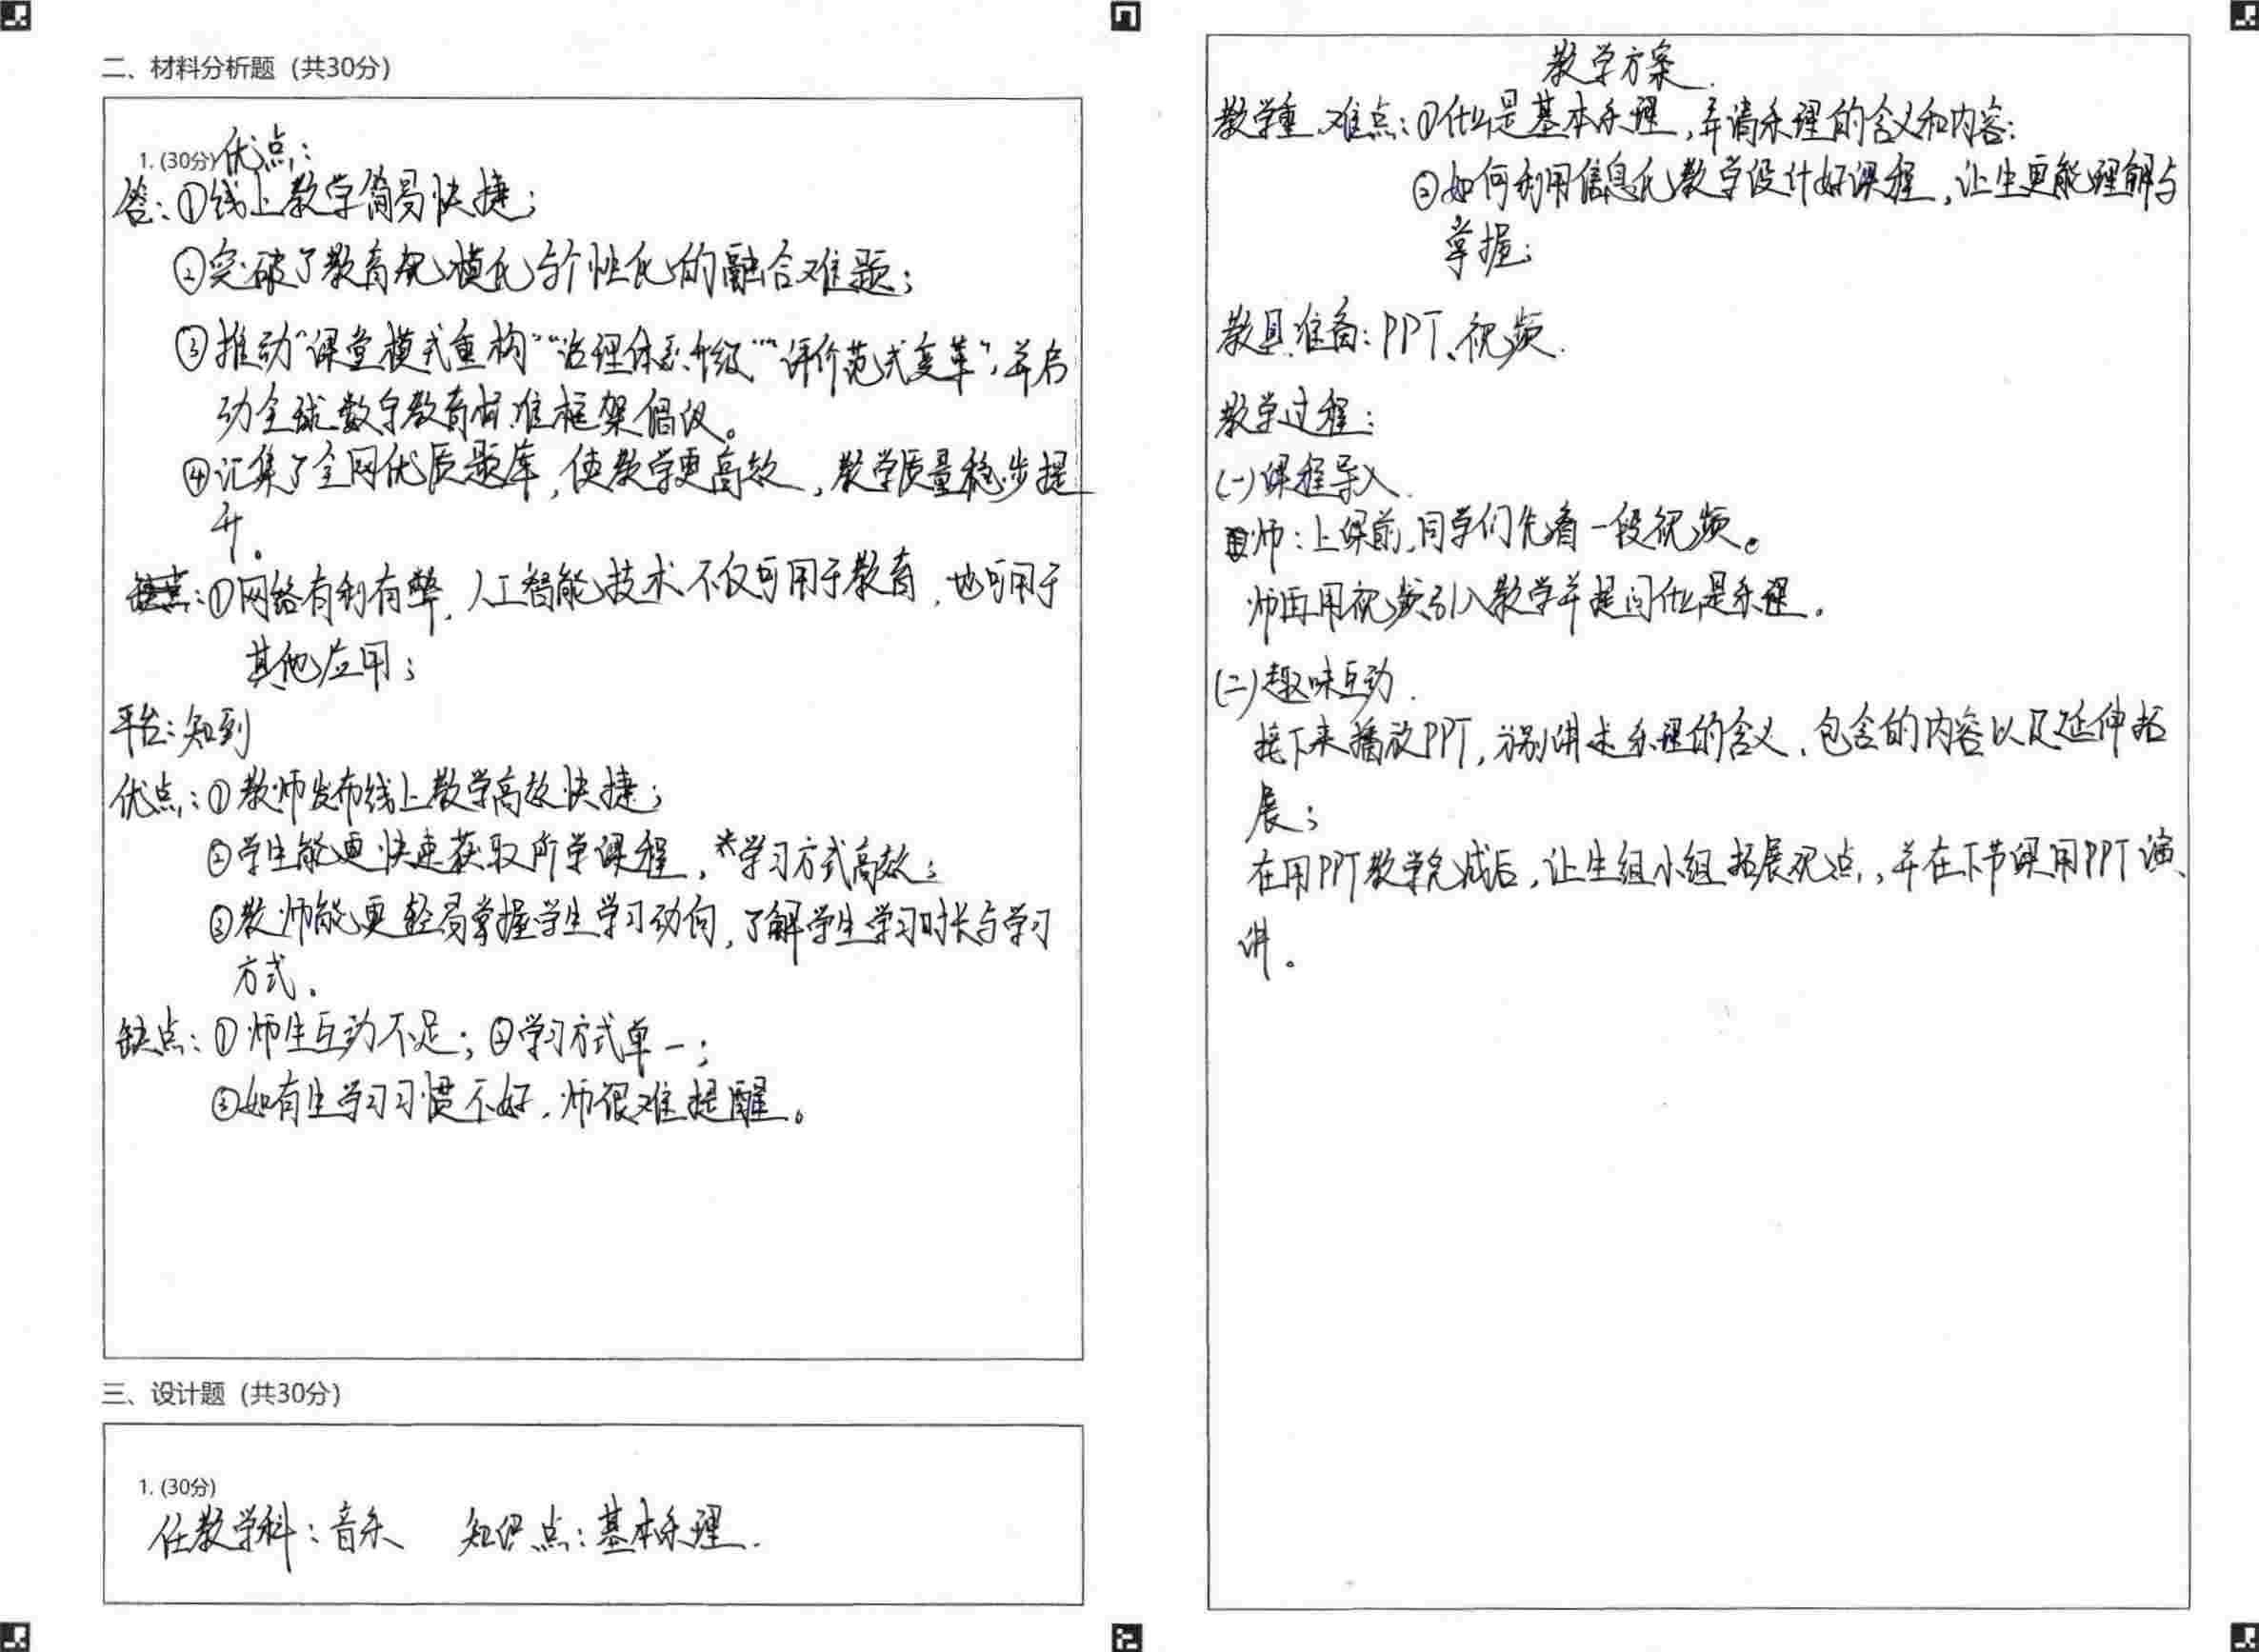 二、材料分析题（共30分）
1. (30分) 优点：
答：①线上教学简易快捷；
②突破了教育规模化与个性化的融合难题；
③推动“课堂模式重构”“治理体系升级”“评价范式变革”，并启
动全球数字教育标准框架倡议。
④汇集了全网优质题库，使教学更高效，教学质量稳步提
升。
缺点：①网络有利有弊，人工智能技术不仅可用于教育，也可用于
其他应用；
平台：知到
优点：①教师发布线上教学高效快捷；
②学生能更快速获取所学课程，学习方式高效；
③教师能更轻易掌握学生学习动向，了解学生学习时长与学习
方式。
缺点：①师生互动不足；②学习方式单一；
③如有生学习习惯不好，师很难提醒。
三、设计题（共30分）
1. (30分)
任教学科：音乐 知识点：基本乐理.
教学方案.
教学重、难点：①什么是基本乐理，弄请乐理的含义和内容；
②如何利用信息化教学设计好课程，让生更能理解与
掌握；
教具准备：PPT、视频.
教学过程：
(一)课程导入.
师：上课前，同学们先看一段视频。
师再用视频引入教学并提问什么是乐理。
(二)趣味互动.
接下来播放PPT，分别讲述乐理的含义、包含的内容以及延伸拓
展；
在用PPT教学完成后，让生组小组拓展观点，并在下节课用PPT演
讲。